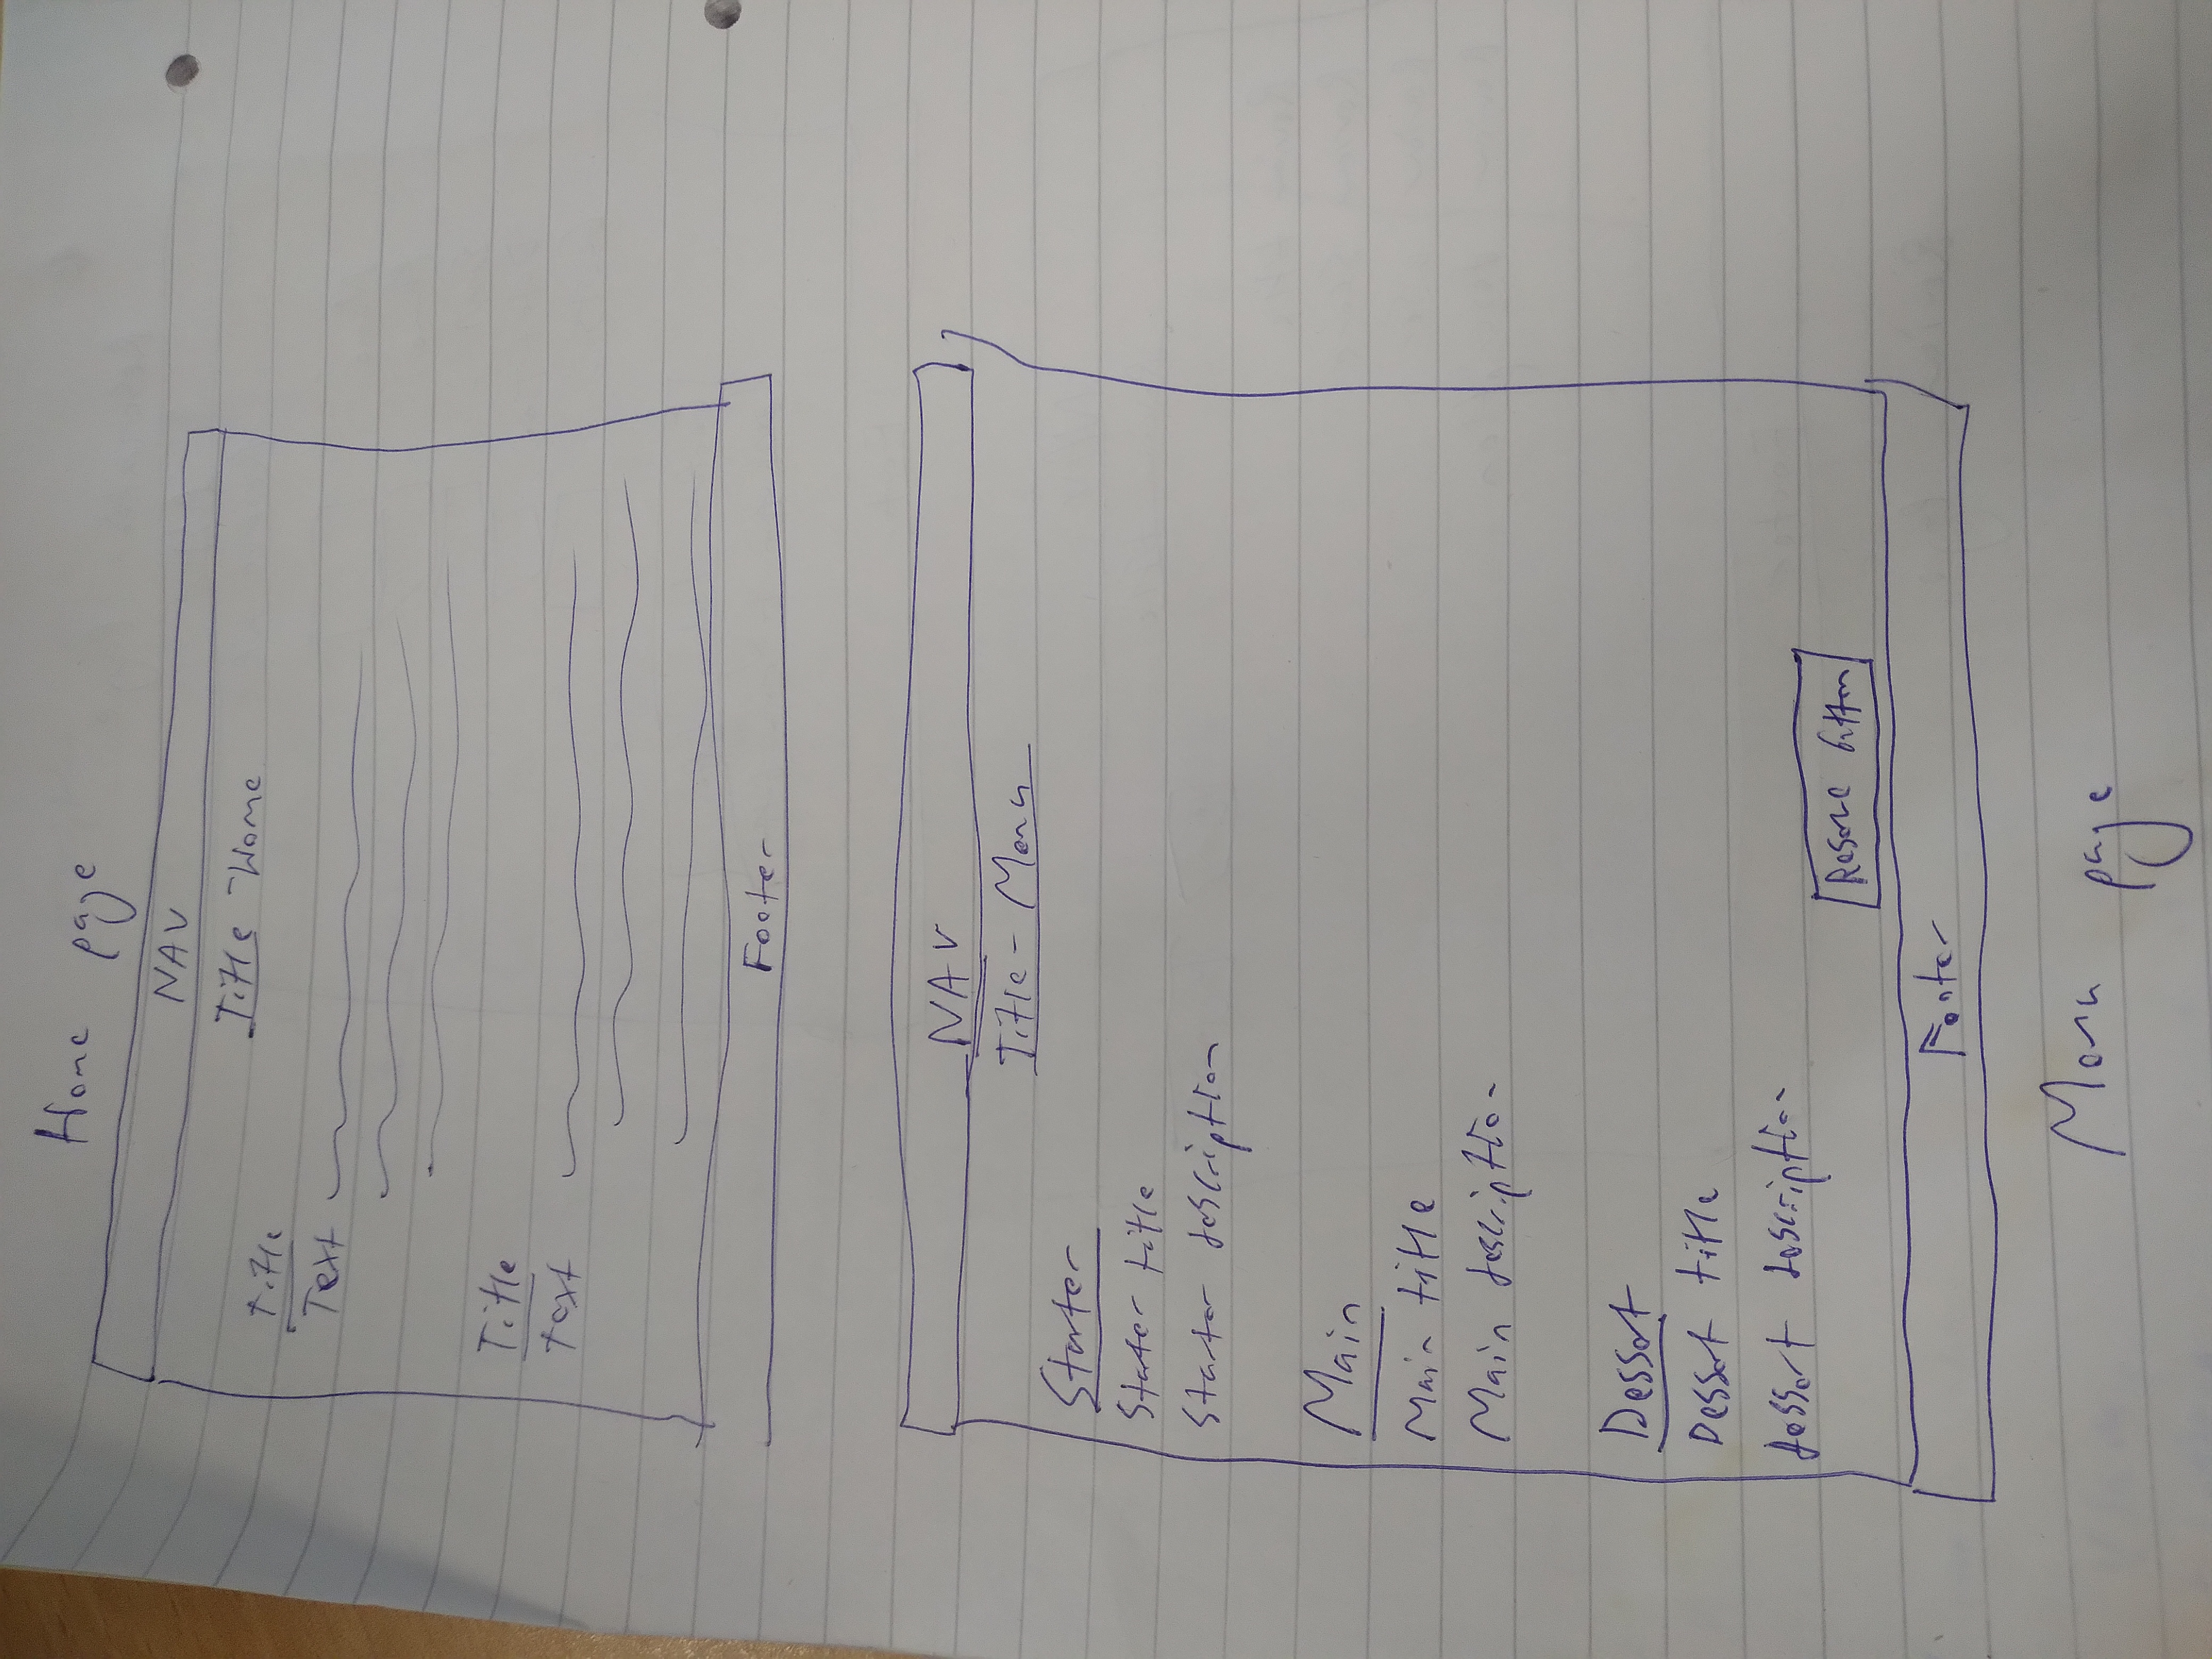 Home page
NAV
Title - Home
Title
Text
Title
text
Footer
NAV
Title - Menu
Starter
Starter title
Starter description
Main
Main title
Main description
Dessert
Dessert title
dessert description
Reserve button
Footer
Menu page